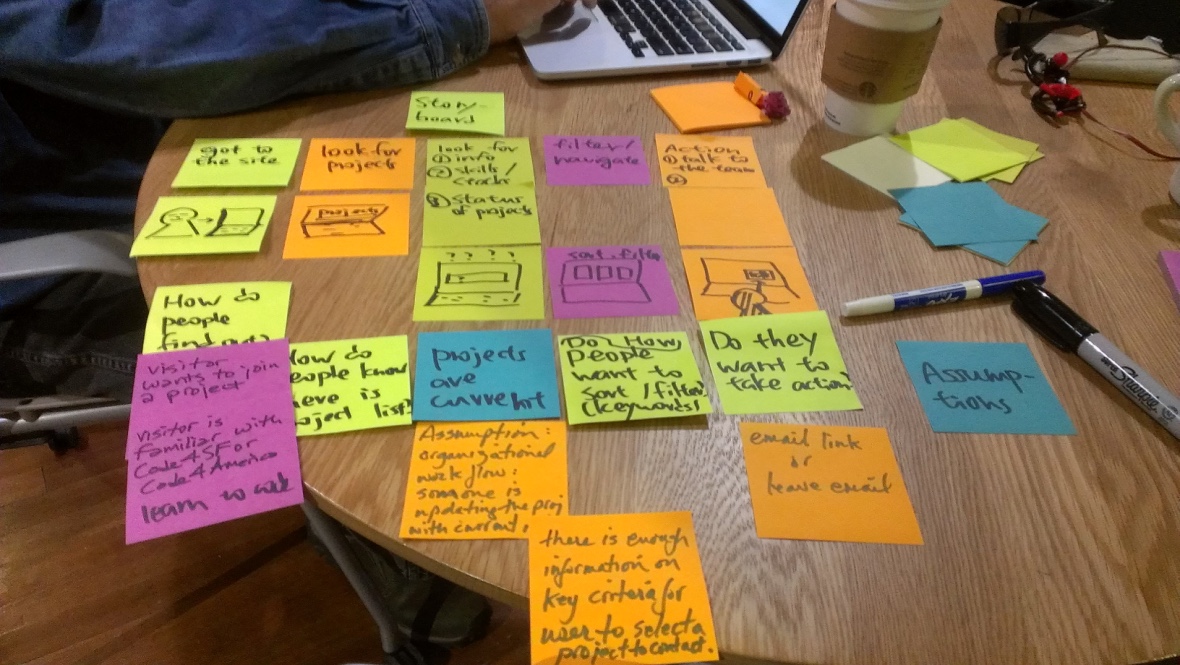 Story-
board
got to
the site
look for
projects
look for
① info
② skills/
③ status
of projects
filter/
navigate
Action
① talk to
the team
②
projects
? ? ? ?
sort, filter
How do
people
find out?
visitor
wants to join
a project
visitor is
familiar with
Code4SF or
Code4America
learn to
How do
people know
there is
project list?
projects
are
current
Do How
people
want to
sort / filter?
(keywords)
Do they
want to
take action?
Assump-
tions
Assumption:
organizational
workflow:
someone is
updating the proj
with current
email link
or
leave email
there is enough
information on
key criteria for
user to select a
project to contact.
Sharpie